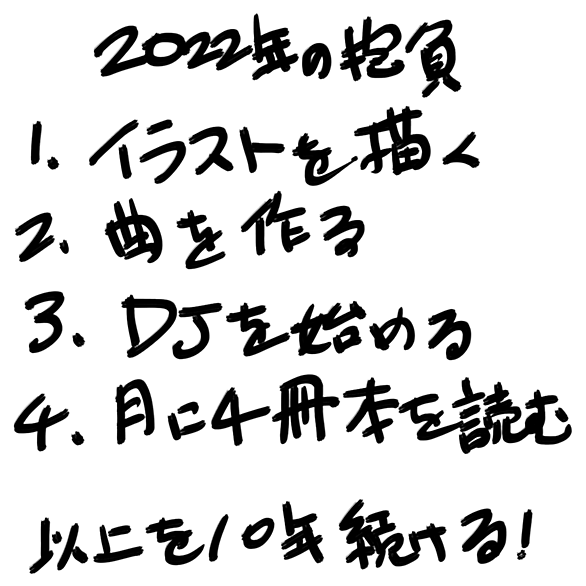 2022年の抱負
1. イラストを描く
2. 曲を作る
3. DJを始める
4. 月に4冊本を読む
以上を10年続ける!